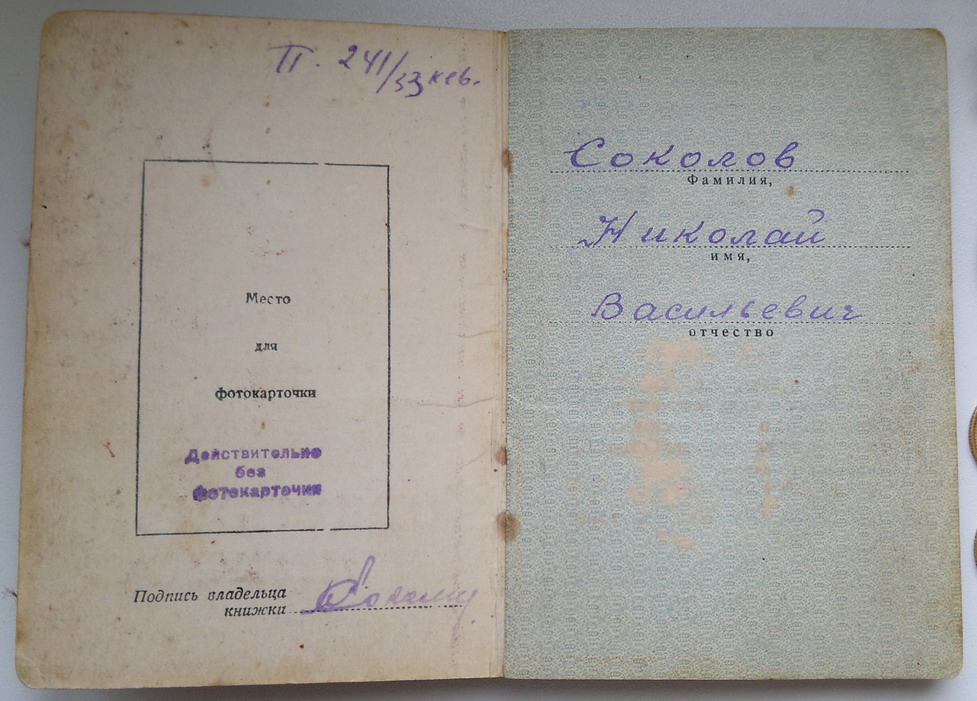 П. 241/33 кев.
Место
для
фотокарточки
Действительно
без
фотокарточки
Подпись владельца
книжки
Соколов
Фамилия,
Николай
имя,
Васильевич
отчество